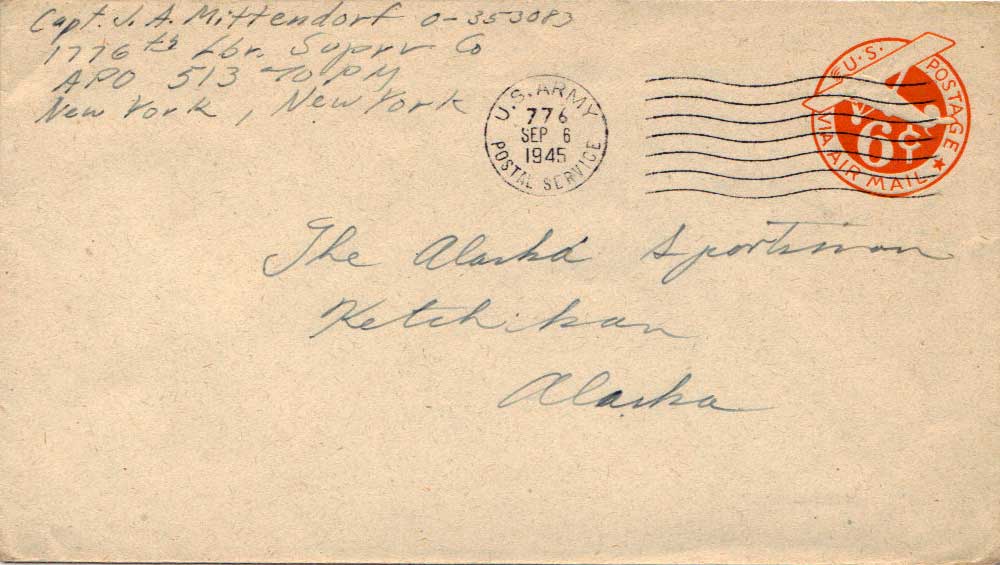 Capt. J. A. Mittendorf O-353083
1776th Lbr. Suprv Co
APO 513 % PM
New York, New York
U.S. ARMY
776
SEP 6
1945
POSTAL SERVICE
U.S. POSTAGE
6¢
VIA AIR MAIL
The Alaska Sportsman
Ketchikan
Alaska